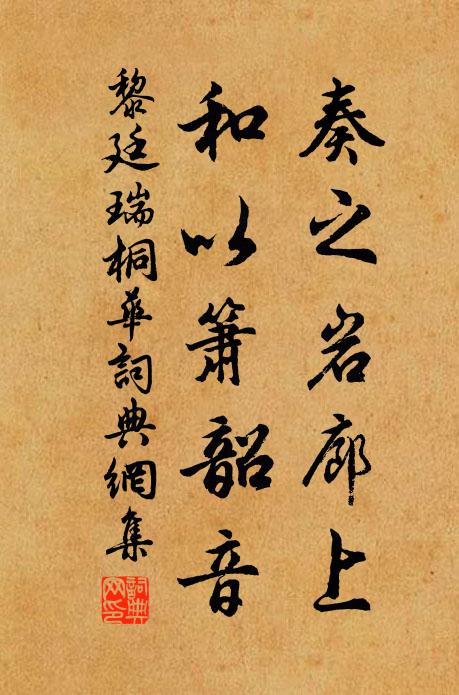 奏之岩廊上
和以箫韶音
黎廷瑞桐華詞典網集
詞典網印